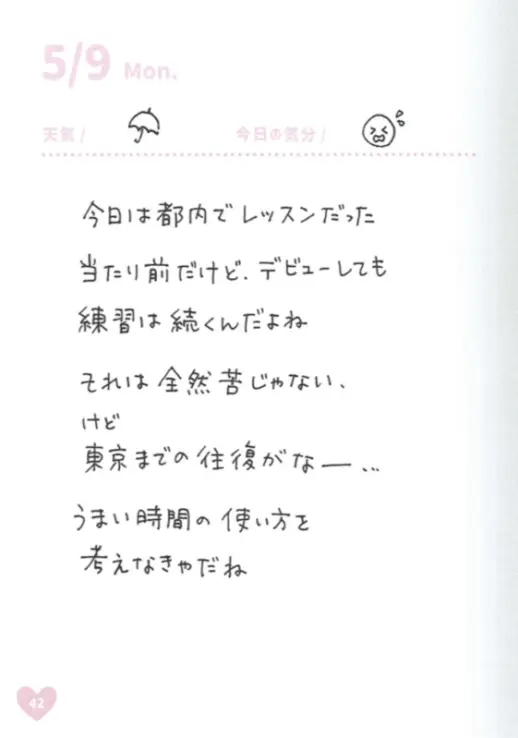 5/9 Mon.
天気 / 今日の気分 /
今日は都内でレッスンだった
当たり前だけど、デビューしても
練習は続くんだよね
それは全然苦じゃない、
けど
東京までの往復がなー…
うまい時間の使い方を
考えなきゃだね
42